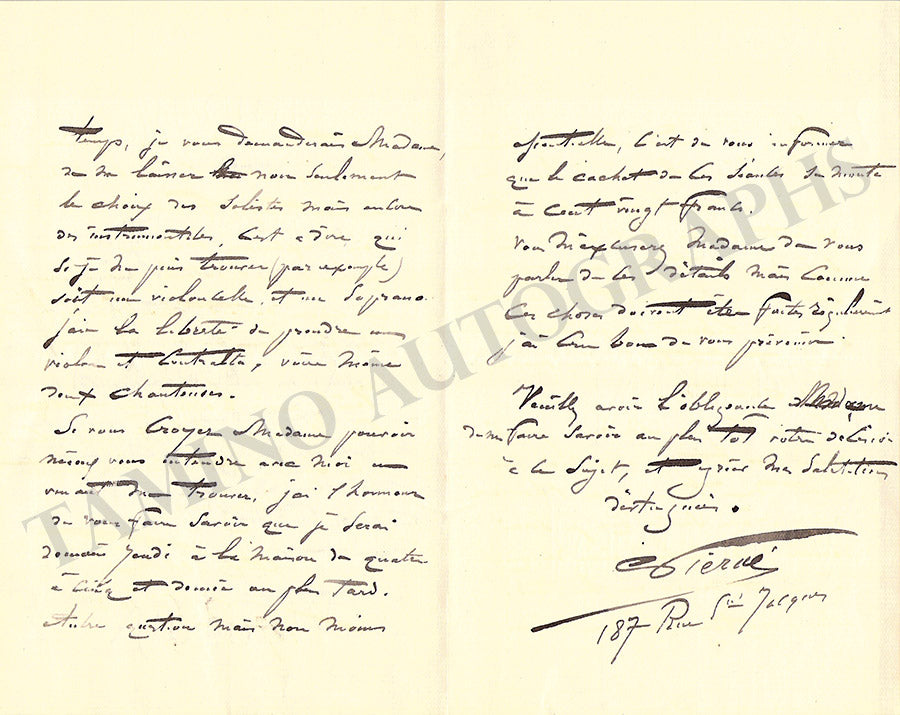 temps, je vous demanderais Madame,
de me laisser non seulement
le choix des solistes mais encore
des instruments, c'est à dire que
si je ne puis trouver (par exemple)
soit un violoncelle, et un Soprano
j'aie la liberté de prendre un
violon et Contralto, voire même
deux chanteuses.
Si vous croyez Madame pouvoir
mieux vous entendre avec moi en
venant me trouver, j'ai l'honneur
de vous faire savoir que je serai
demain Jeudi à la maison de quatre
à cinq et demie au plus tard.
Autre question mais non moins
essentielle, c'est de vous informer
que le cachet de ces séances se monte
à cent vingt francs.
Vous m'excuserez Madame de vous
parler de ces détails mais comme
ces choses doivent être faites régulièrement
j'ai cru bon de vous prévenir.
Veuillez avoir l'obligeance Madame
de me faire savoir au plus tôt votre décision
à ce sujet, et agréer mes salutations
distinguées.
Pierné
187 Rue St Jacques
TAMINO AUTOGRAPHS